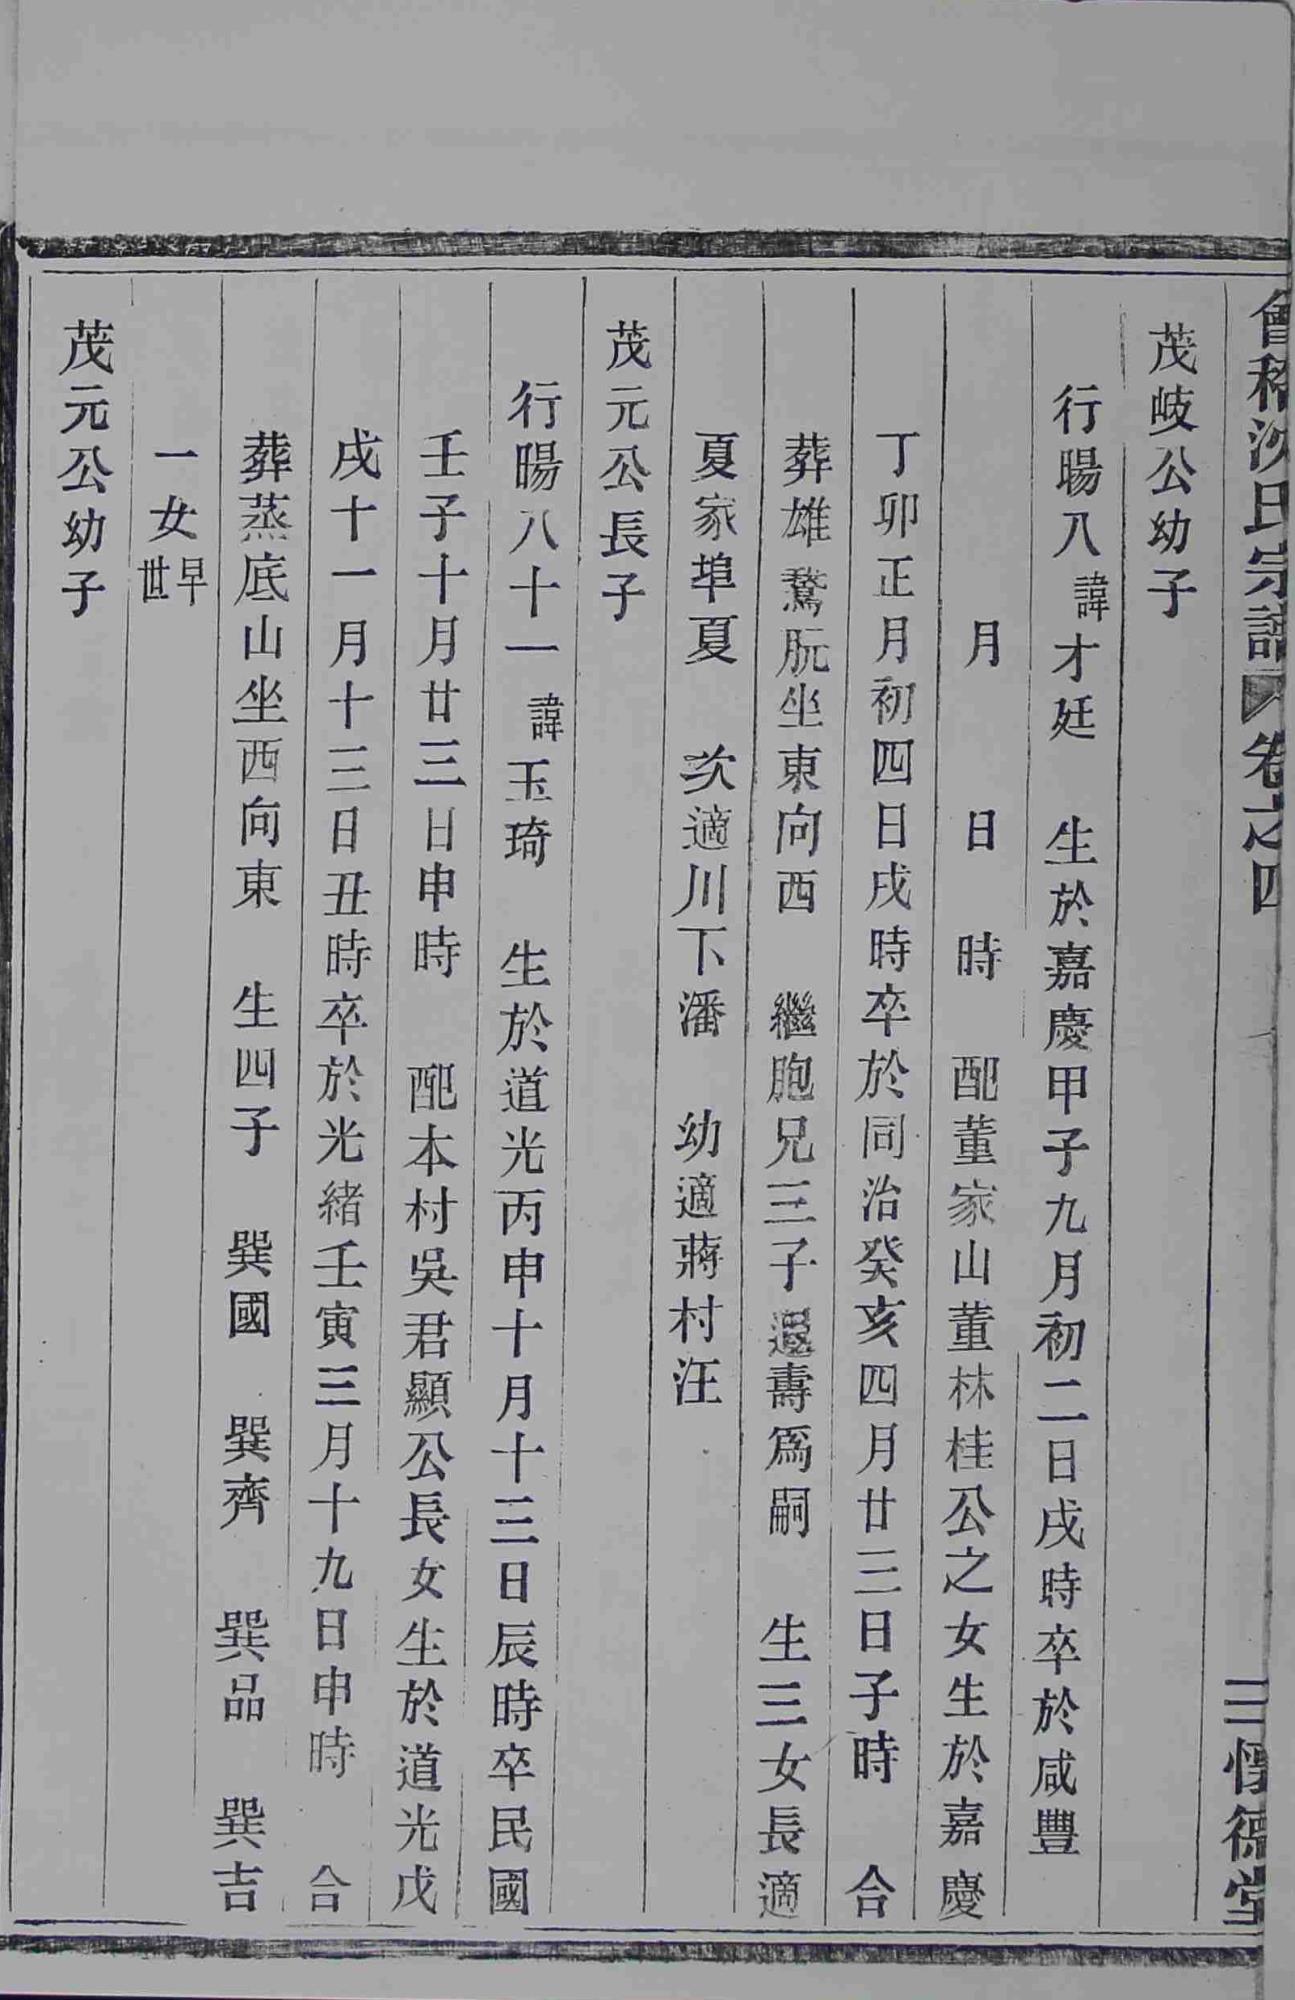 會稽沈氏宗譜 卷之四 三 德堂
茂岐公幼子
行暘八諱才廷 生於嘉慶甲子九月初二日戌時卒於咸豐
月 日 時 配董家山董林桂公之女生於嘉慶
丁卯正月初四日戌時卒於同治癸亥四月廿三日子時 合
葬雄鵞朊坐東向西 繼胞兄三子還壽爲嗣 生三女長適
夏家埠夏 次適川下潘 幼適蔣村汪
茂元公長子
行暘八十一諱玉琦 生於道光丙申十月十三日辰時卒民國
壬子十月廿三日申時 配本村吳君顯公長女生於道光戊
戌十一月十三日丑時卒於光緒壬寅三月十九日申時 合
葬蒸底山坐西向東 生四子 巽國 巽齊 巽品 巽吉
一女早世
茂元公幼子